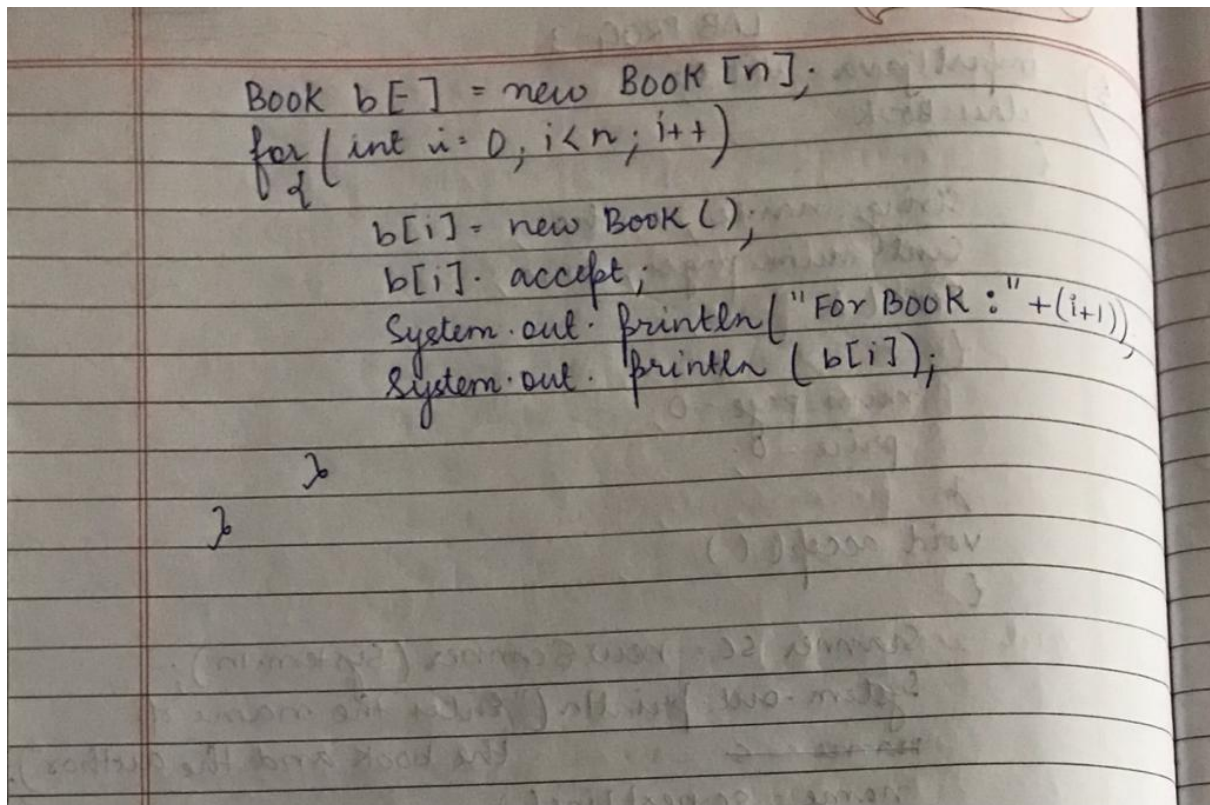 Book b[] = new Book [n];
for (int i = 0; i<n; i++)
{
b[i] = new Book ();
b[i]. accept;
System.out. println("For Book :" +(i+1));
System.out. println (b[i]);
}
}